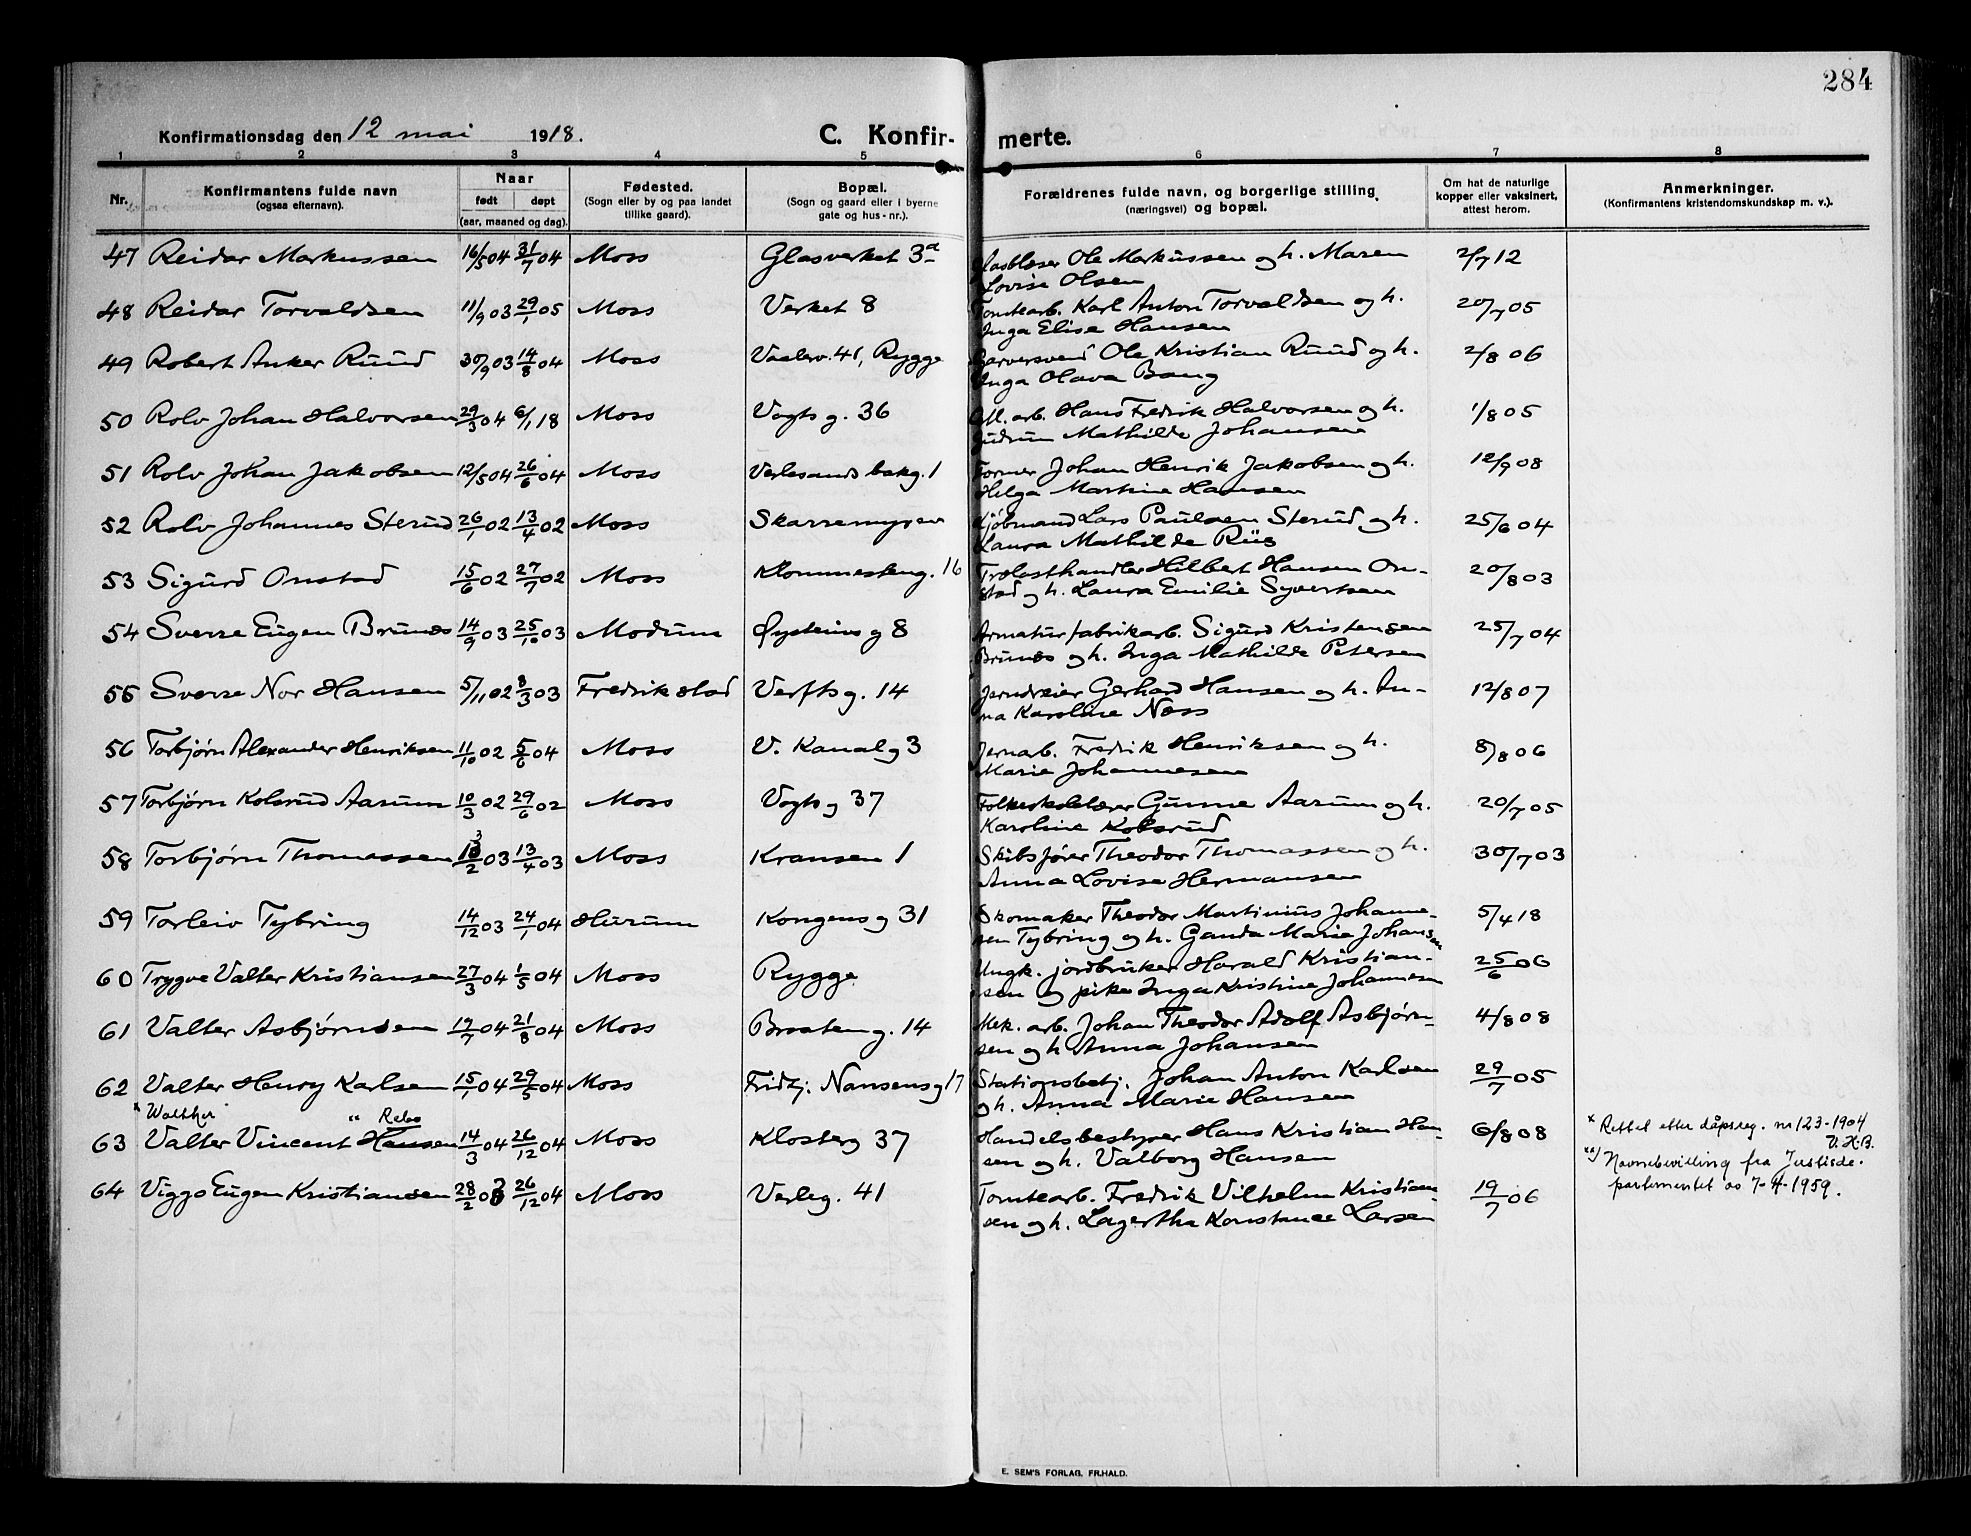 284
Konfirmationsdag den 12 mai 1918. C. Konfir- merte.
1 2 3 4 5 6 7 8
Nr. Konfirmantens fulde navn (ogsaa efternavn). Naar født døpt (aar, maaned og dag). Fødested. (Sogn eller by og paa landet tillike gaard). Bopæl. (Sogn og gaard eller i byerne gate og hus-nr.). Forældrenes fulde navn, og borgerlige stilling, (næringsvei) og bopæl. Om hat de naturlige kopper eller vaksinert, attest herom. Anmerkninger. (Konfirmantens kristendomskundskap m. v.).
47 Reidar Markussen 16/5 04 31/7 04 Moss Glasverket 3a Glasblæser Ole Markussen og h. Maren 2/7 12
Lovise Olsen
48 Reidar Torvaldsen 11/9 03 29/1 05 Moss Verket 8 Tomtearb. Karl Anton Torvaldsen og h. 20/7 05
Inga Elise Hansen
49 Robert Anker Ruud 30/9 03 14/8 04 Moss Vaalerv. 41, Rygge Garversvend Ole Kristian Ruud og h. 2/8 06
Inga Olava Bang
50 Rolv Johan Halvorsen 29/3 04 6/1 18 Moss Vogts g. 36 arb. Hans Fredrik Halvorsen og h. 1/8 05
Gudrun Mathilde Johansen
51 Rolv Johan Jakobsen 12/5 04 26/6 04 Moss Værlesands bakg. 1 Former Johan Henrik Jakobsen og h. 12/9 08
Helga Martine Hansen
52 Rolv Johannes Sterud 26/1 02 13/4 02 Moss Skarremyren Kjøbmand Lars Paulsen Sterud og h. 25/6 04
Laura Mathilde Riis
53 Sigurd Onstad 15/6 02 27/7 02 Moss Klommesteng. 16 Trælasthandler Hilbert Hansen On-
stad og h. Laura Emilie Syvertsen 20/8 03
54 Sverre Eugen Brunæs 14/9 03 25/10 03 Modum Øysteins g 8 Armaturfabrikarb. Sigurd Kristensen 25/7 04
Brunæs og h. Inga Mathilde Petersen
55 Sverre Nor Hansen 5/11 02 8/3 03 Fredrikstad Verfts g. 14 Jerndreier Gerhard Hansen og h. An- 12/8 07
na Karoline Næss
56 Torbjørn Alexander Henriksen 11/10 02 5/6 04 Moss V. Kanalg 3 Jernarb. Fredrik Henriksen og h. 8/8 06
Marie Johannesen
57 Torbjørn Kolsrud Aarum 10/3 02 29/6 02 Moss Vogts g 37 Folkeskolelærer Gunne Aarum og h. 20/7 05
Karoline Kolsrud
58 Torbjørn Thomassen 13/2 03 13/4 03 Moss Kransen 1 Skibsfører Theodor Thomassen og h. 30/7 03
Anna Lovise Hermansen
59 Torleiv Tybring 14/12 03 24/1 04 Hurum Kongens g 31 Skomaker Theodor Martinius Johanne- 5/4 18
sen Tybring og h. Ganda Marie Johansen
60 Trygve Valter Kristiansen 27/3 04 1/5 04 Moss Rygge Ungk. jordbruker Harald Kristian- 25/6 06
sen og pike Inga Kristine Johannesen
61 Valter Asbjørnsen 19/7 04 21/8 04 Moss Braaten g. 14 Mek. arb. Johan Theodor Adolf Asbjørn- 4/8 08
sen og h Anna Johansen
62 Valter Henry Karlsen 15/1 04 29/5 04 Moss Fridtj. Nansens g 17 Stationsbetj. Johan Anton Karlsen 29/7 05
og h. Anna Marie Hansen
x Walther xx Rebo
63 Valter Vincent Hansen 14/3 04 26/12 04 Moss Klosterg 37 Handelsbestyrer Hans Kristian Han- 6/8 08 x Rettet etter dåpsreg. nr 123-1904
sen og h. Valborg Hansen V.H.B.
xx) Navnebevilling fra Justisde-
partementet av 7-4-1959.
64 Viggo Eugen Kristiansen 28/2 03 26/12 04 Moss Værleg. 41 Tomtearb. Fredrik Vilhelm Kristian- 19/7 06
sen og h. Lagertha Konstance Larsen
E. SEM'S FORLAG, FR.HALD.